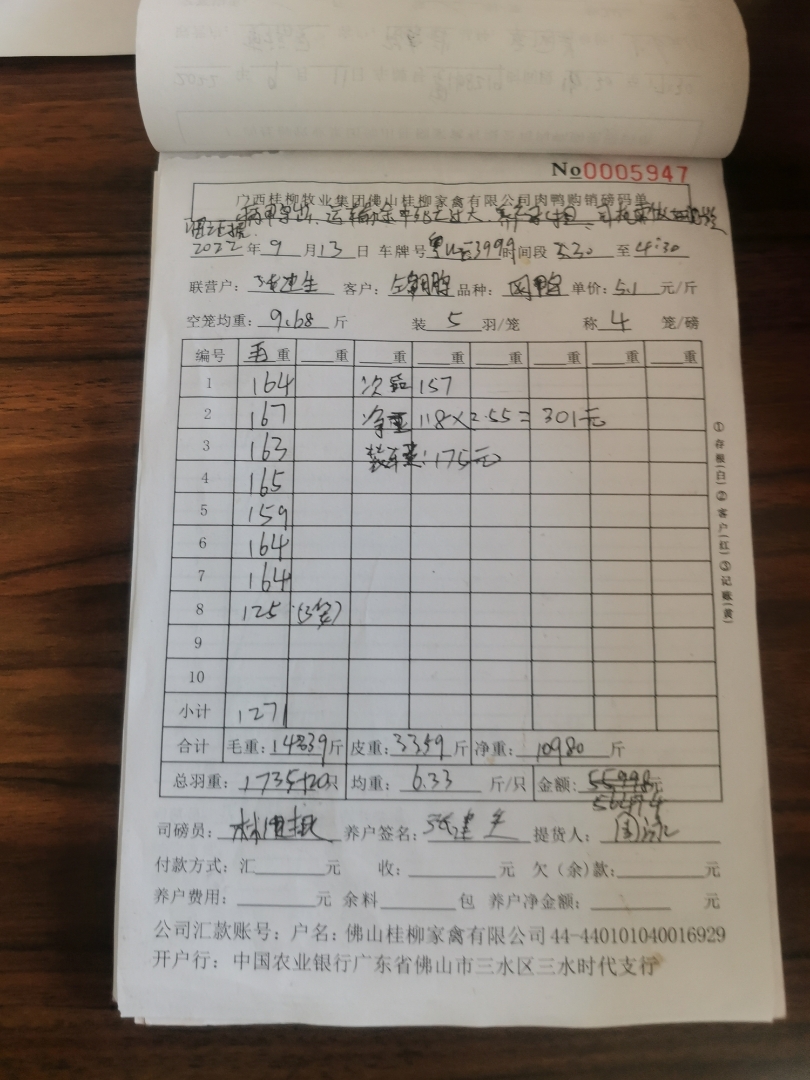 No0005947
广西桂柳牧业集团佛山桂柳家禽有限公司肉鸭购销磅码单
2022年9月13日 车牌号 时间段3:30至4:30
联营户: 客户: 品种: 单价:5.1元/斤
空笼均重:9.68斤 装5羽/笼 称4笼/磅
编号 毛重 重 重 重 重 重 重 重
1 164 157
2 167 净重 118×2.55=301元
3 163 装车费:175元
4 165
5 159
6 164
7 164
8 125
9
10
小计 1271
合计 毛重:14339斤 皮重:3359斤 净重:10980斤
总羽重:1735 只 均重:6.33斤/只 金额:55998元
56474
司磅员: 养户签名: 提货人:
付款方式:汇 元 收: 元 欠(余)款: 元
养户费用: 元 余料 包 养户净金额: 元
公司汇款账号:户名:佛山桂柳家禽有限公司44-440101040016929
开户行:中国农业银行广东省佛山市三水区三水时代支行
①存根(白)②客户(红)③记账(黄)